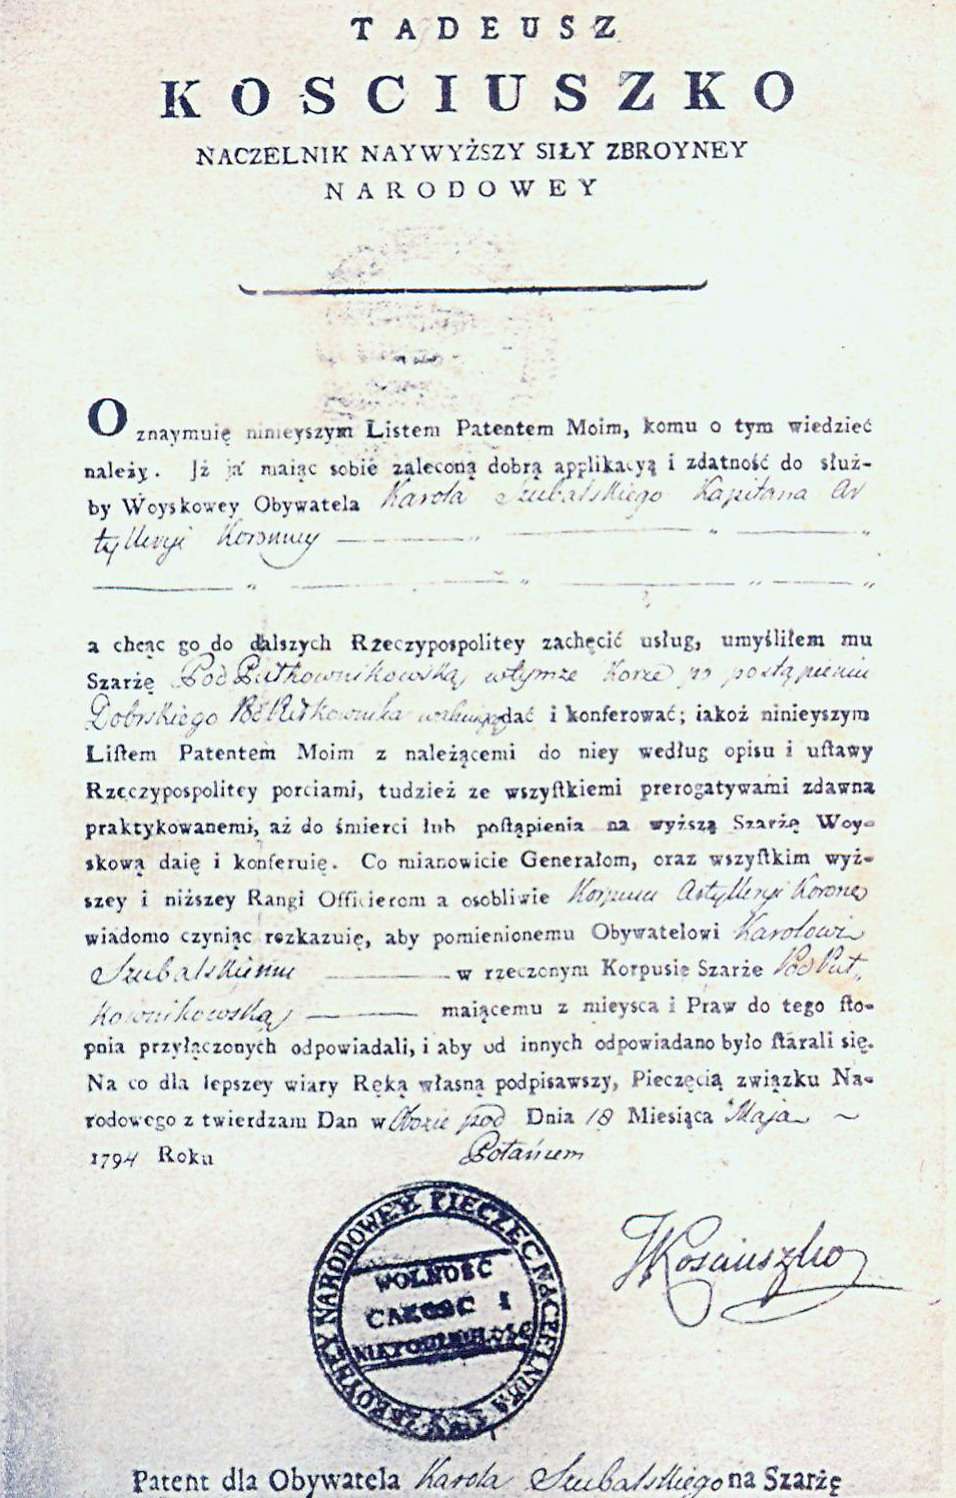 TADEUSZ
KOSCIUSZKO
NACZELNIK NAYWYŻSZY SIŁY ZBROYNEY
NARODOWEY
Oznaymuię ninieyszym Liſtem Patentem Moim, komu o tym wiedzieć
należy. Jż ja maiąc sobie zaleconą dobrą applikacyą i zdatność do służ-
by Woyskowey Obywatela Karola Szubalskiego Kapitana Ar
tylleryi Koronney
a chcąc go do dalszych Rzeczypospolitey zachęcić usług, umyśliłem mu
Szarżę PodPułkownikowską wtymże Korpie po postąpieniu
Dobrskiego Półkownika dać i konferować; iakoż ninieyszym
Liſtem Patentem Moim z należącemi do niey według opisu i uſtawy
Rzeczypospolitey porciami, tudzież ze wszyſtkiemi prerogatywami zdawna
praktykowanemi, aż do śmierci lub poſtąpienia na wyższą Szarżę Woy-
skową daię i konferuię. Co mianowicie Generałom, oraz wszyſtkim wyż-
szey i niższey Rangi Officierom a osobliwie Korpusu Artylleryi Koronney
wiadomo czyniąc rozkazuię, aby pomienionemu Obywatelowi Karolowi
Szubalskiemu w rzeczonym Korpusie Szarże PodPuł
kownikowską maiącemu z mieysca i Praw do tego ſto-
pnia przyłączonych odpowiadali, i aby od innych odpowiadano było ſtarali się.
Na co dla lepszey wiary Ręką własną podpisawszy, Pieczęcią związku Na-
rodowego z twierdzam Dan w Obozie pod Dnia 18 Miesiąca Maja
1794 Roku Połańcem
TKosciuszko
PIECZĘC NACZELNIKA SIŁY ZBROYNEY NARODOWEY
WOLNOSC
CAŁOSC I
NIEPODLEGŁOSC
Patent dla Obywatela Karola Szubalskiego na Szarżę